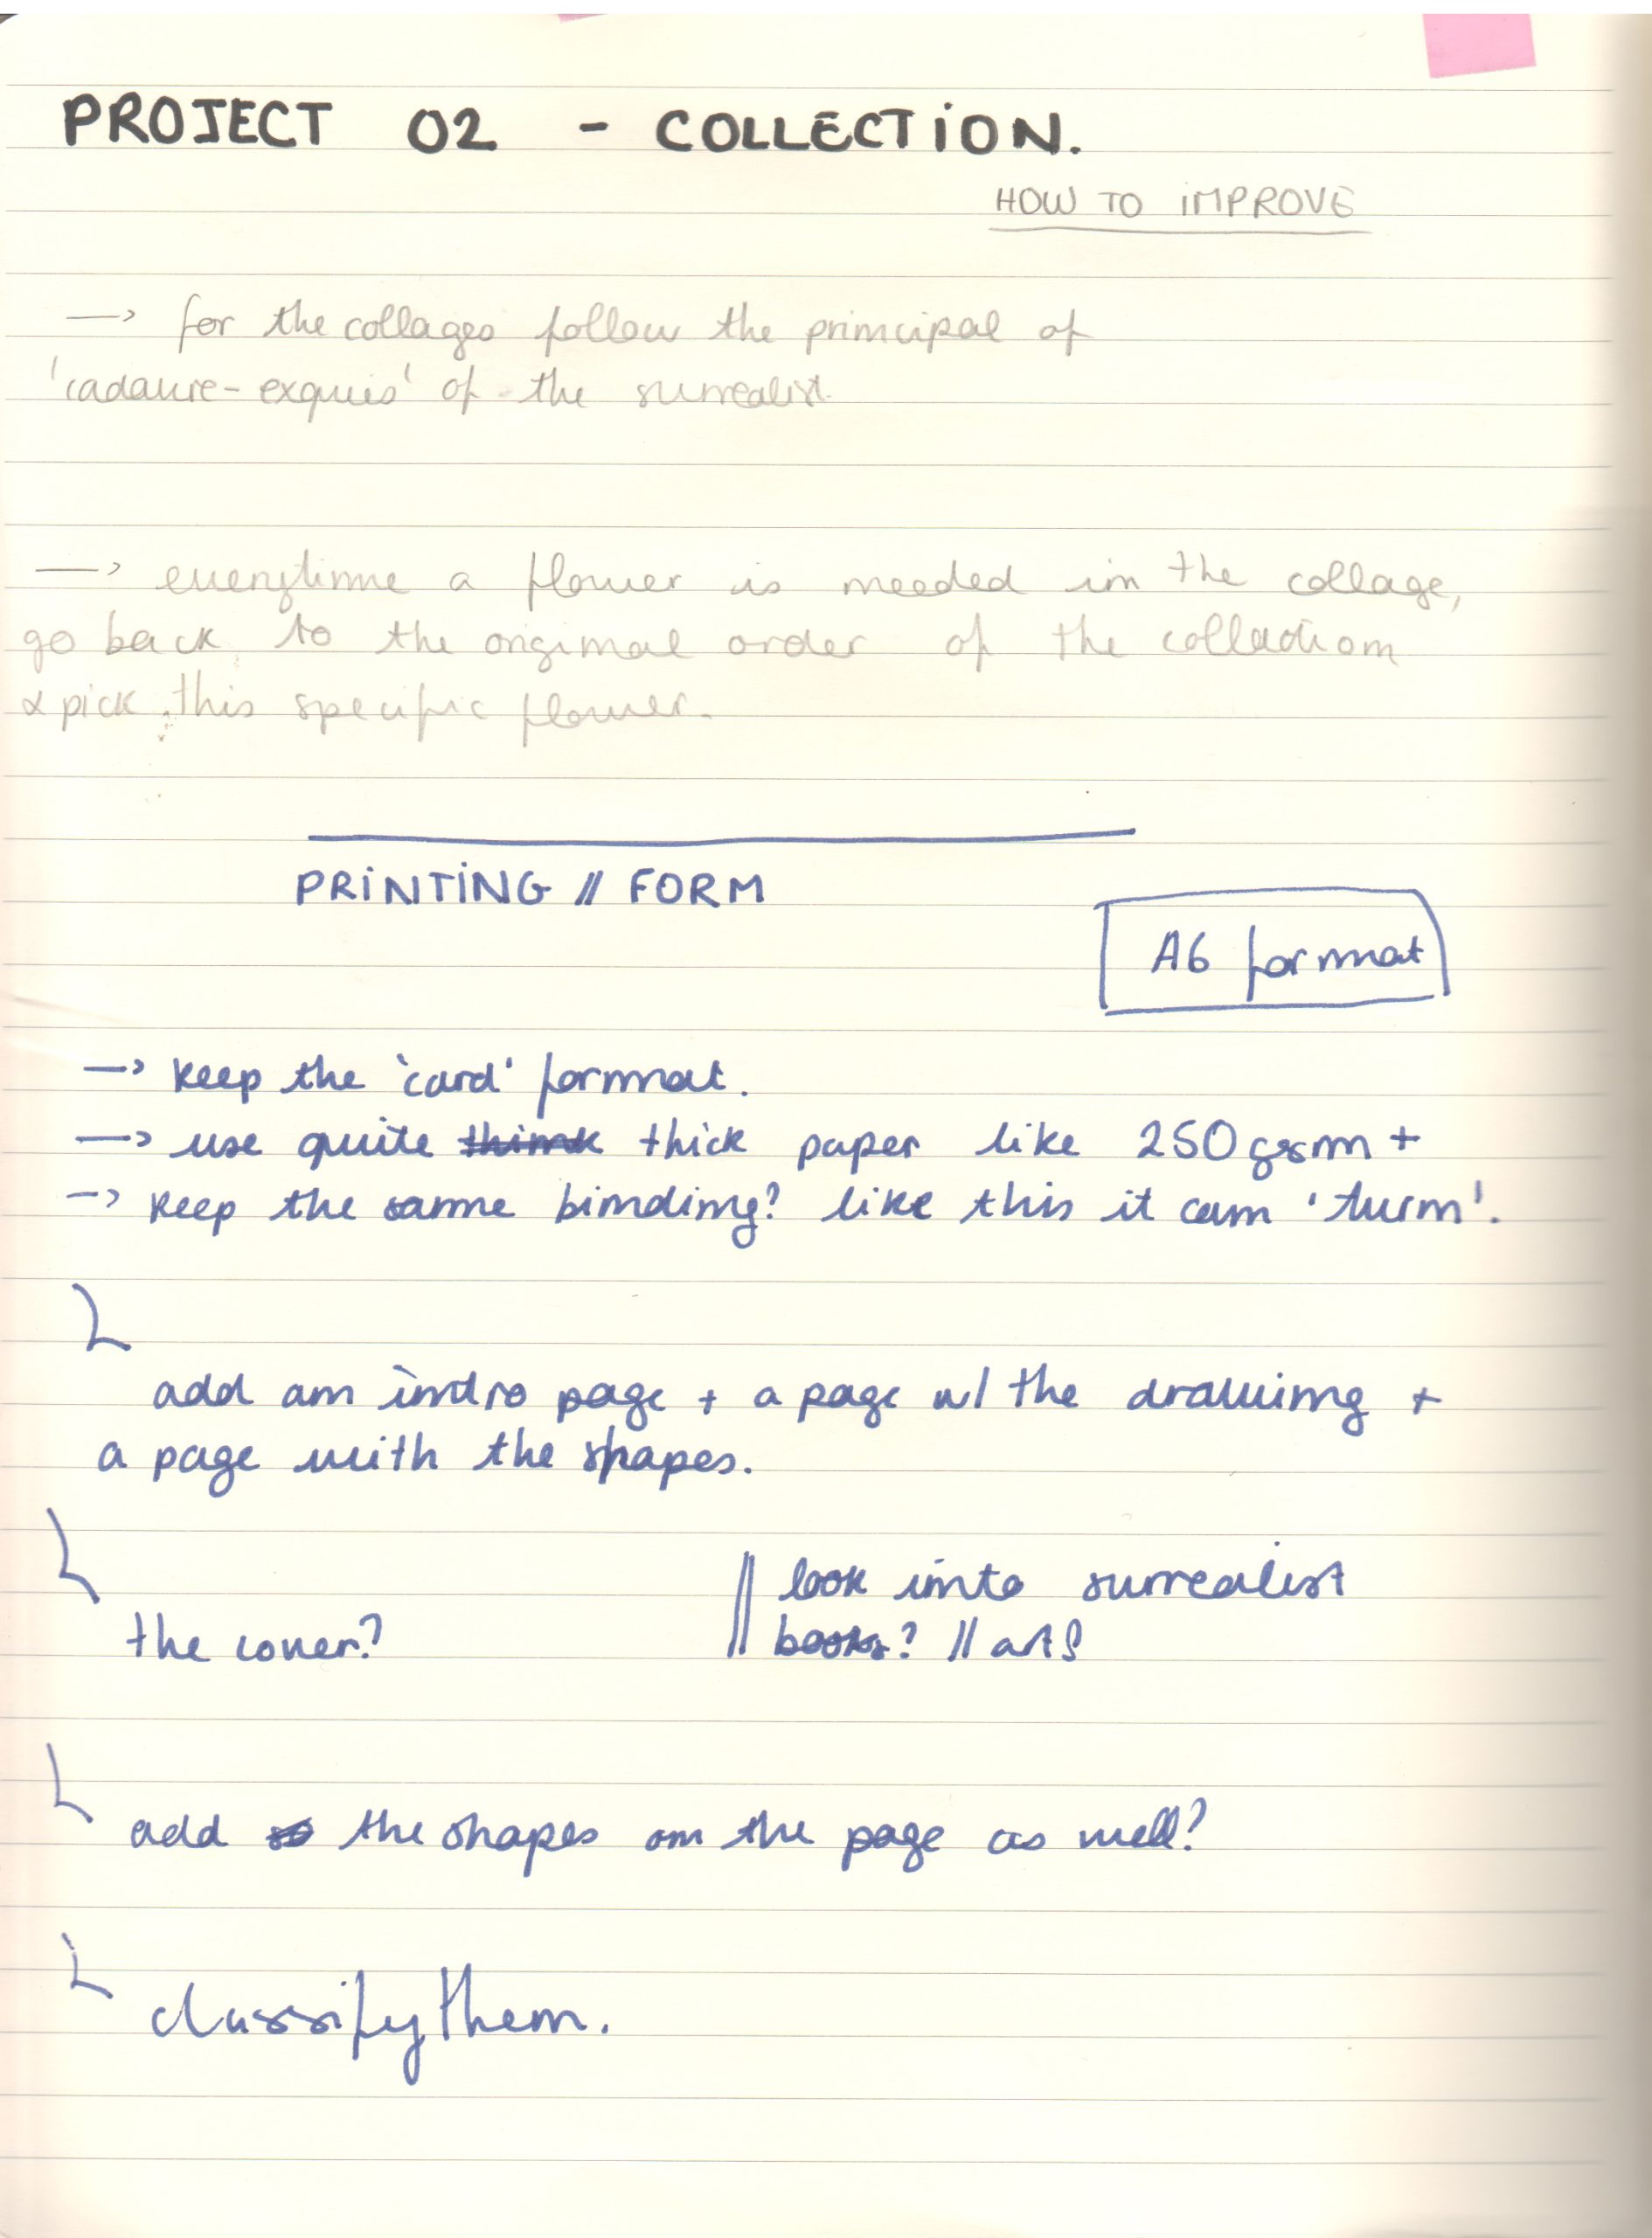 PROJECT 02 - COLLECTION.
HOW TO IMPROVE
—> for the collages follow the principal of
'cadavre-exquis' of the surrealist.
—> everytime a flower is needed in the collage,
go back to the original order of the collection
& pick this specific flower.
PRINTING // FORM
A6 format
—> keep the 'card' format.
—> use quite think thick paper like 250gsm +
—> keep the same binding? like this it can 'turn'.
add an intro page + a page w/ the drawing +
a page with the shapes.
|| look into surrealist
the cover?
|| books? // art?
add the shapes on the page as well?
classify them.